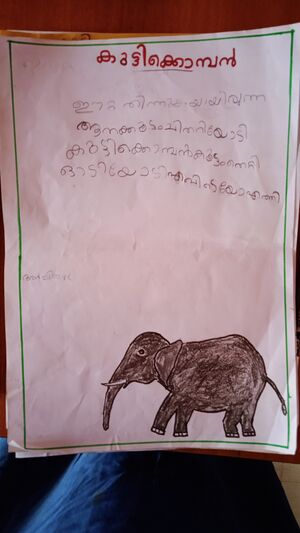 കുട്ടിക്കൊമ്പൻ
ഈറ്റ തിന്നുകയായിരുന്ന
ആനക്കൂട്ടംചിതറിയോടി
കുട്ടിക്കൊമ്പൻകൂട്ടംതെറ്റി
ഓടിയോടിഎവിടെയോഎത്തി